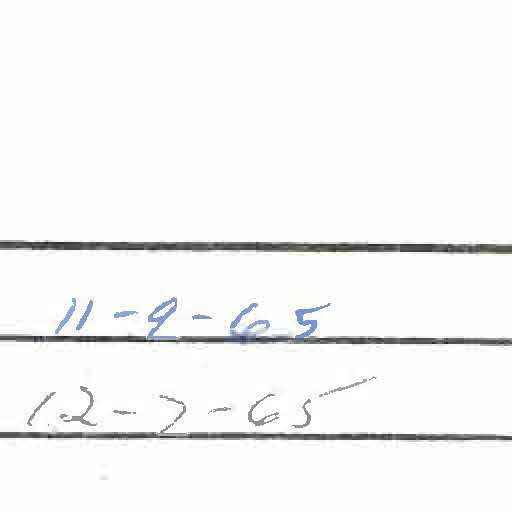 11-9-65
12-7-65